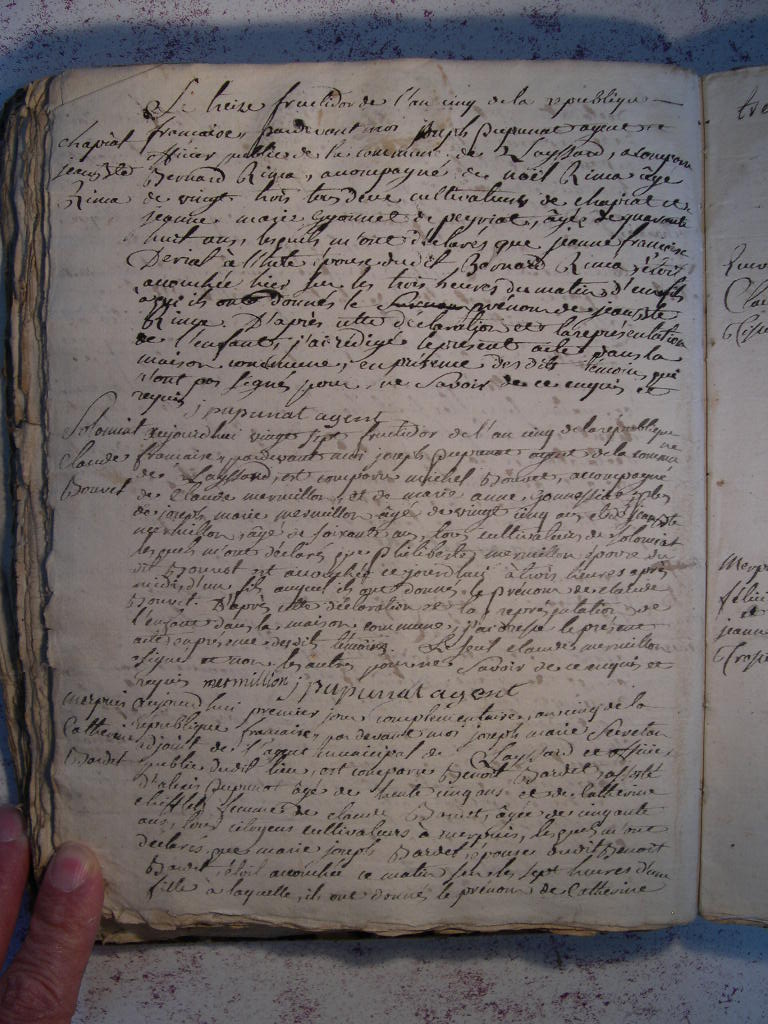 Le treize fructidor de l'an cinq de la republique
chapiat
française, pardevant moi joseph pupunat agent et
jean Bte
officier public de la commune de Leyssard, a comparu
Rima
Bernard Rima, acompagné de noël Rima âgé
de vingt trois tous deux cultivateurs de chapiat et
marie Gyonnet de peyriat, âgée de quarante
huit ans, lesquels m'ont déclarés que jeanne françoise
épouse dudit Bernard Rima, s'étoit
acouchée hier sur les trois heures du matin d'un fils
a qui ils ont donnés le prénom de jean Bte
Rima. D'après cette déclaration et la représentation
de l'enfant, j'ai rédigé le présent acte dans la
maison commune, en présence desdits témoins, qui
n'ont pas signés pour ne savoir de ce enquis et
requis
j pupunat agent
Solomiat
aujourd'hui vingt sept fructidor de l'an cinq de la republique
claude
française, pardevant moi joseph pupunat agent de la commune
Bouvet
de Leyssard, est comparu michel Bouvet, acompagné
de Claude mermillon, et de marie anne
de joseph marie mermillon âgé de vingt cinq ans et de jean Bte
mermillon, âgé de soixante ans, tous cultivateurs de Solomiat
lesquels m'ont déclarés que philiberte mermillon épouse du
dit Bouvet est acouchée ce jourd'hui à trois heures après
midi, d'un fils auquel ils ont donnés le prénom de claude
Bouvet. D'après cette déclaration et la représentation de
l'enfant dans la maison commune, j'ai dressé le présent
acte en présence desdits témoins. Le seul claude mermillon
a signé et non les autres pour ne savoir de ce enquis et
requis mermillion j pupunat agent
merpuis
aujourd'hui premier jour complementaire, an cinq de la
Catherine
république française, pardevant moi joseph marie Servetan
Bardet
adjoint de l'agent municipal de Leyssard et officier
public dudit lieu, est comparu Benoit Bardet, assisté
d'alexis pupunat âgé de trente cinq ans et de Catherine
chifflet femme de claude, âgée de cinquante
ans, tous citoyens cultivateurs à merpuis, lesquels m'ont
déclarés que marie joseph Bardet épouse dudit Benoit
Bardet, s'étoit acouchée ce matin sur les sept heures d'une
fille a laquelle, ils ont donnés le prénom de Catherine